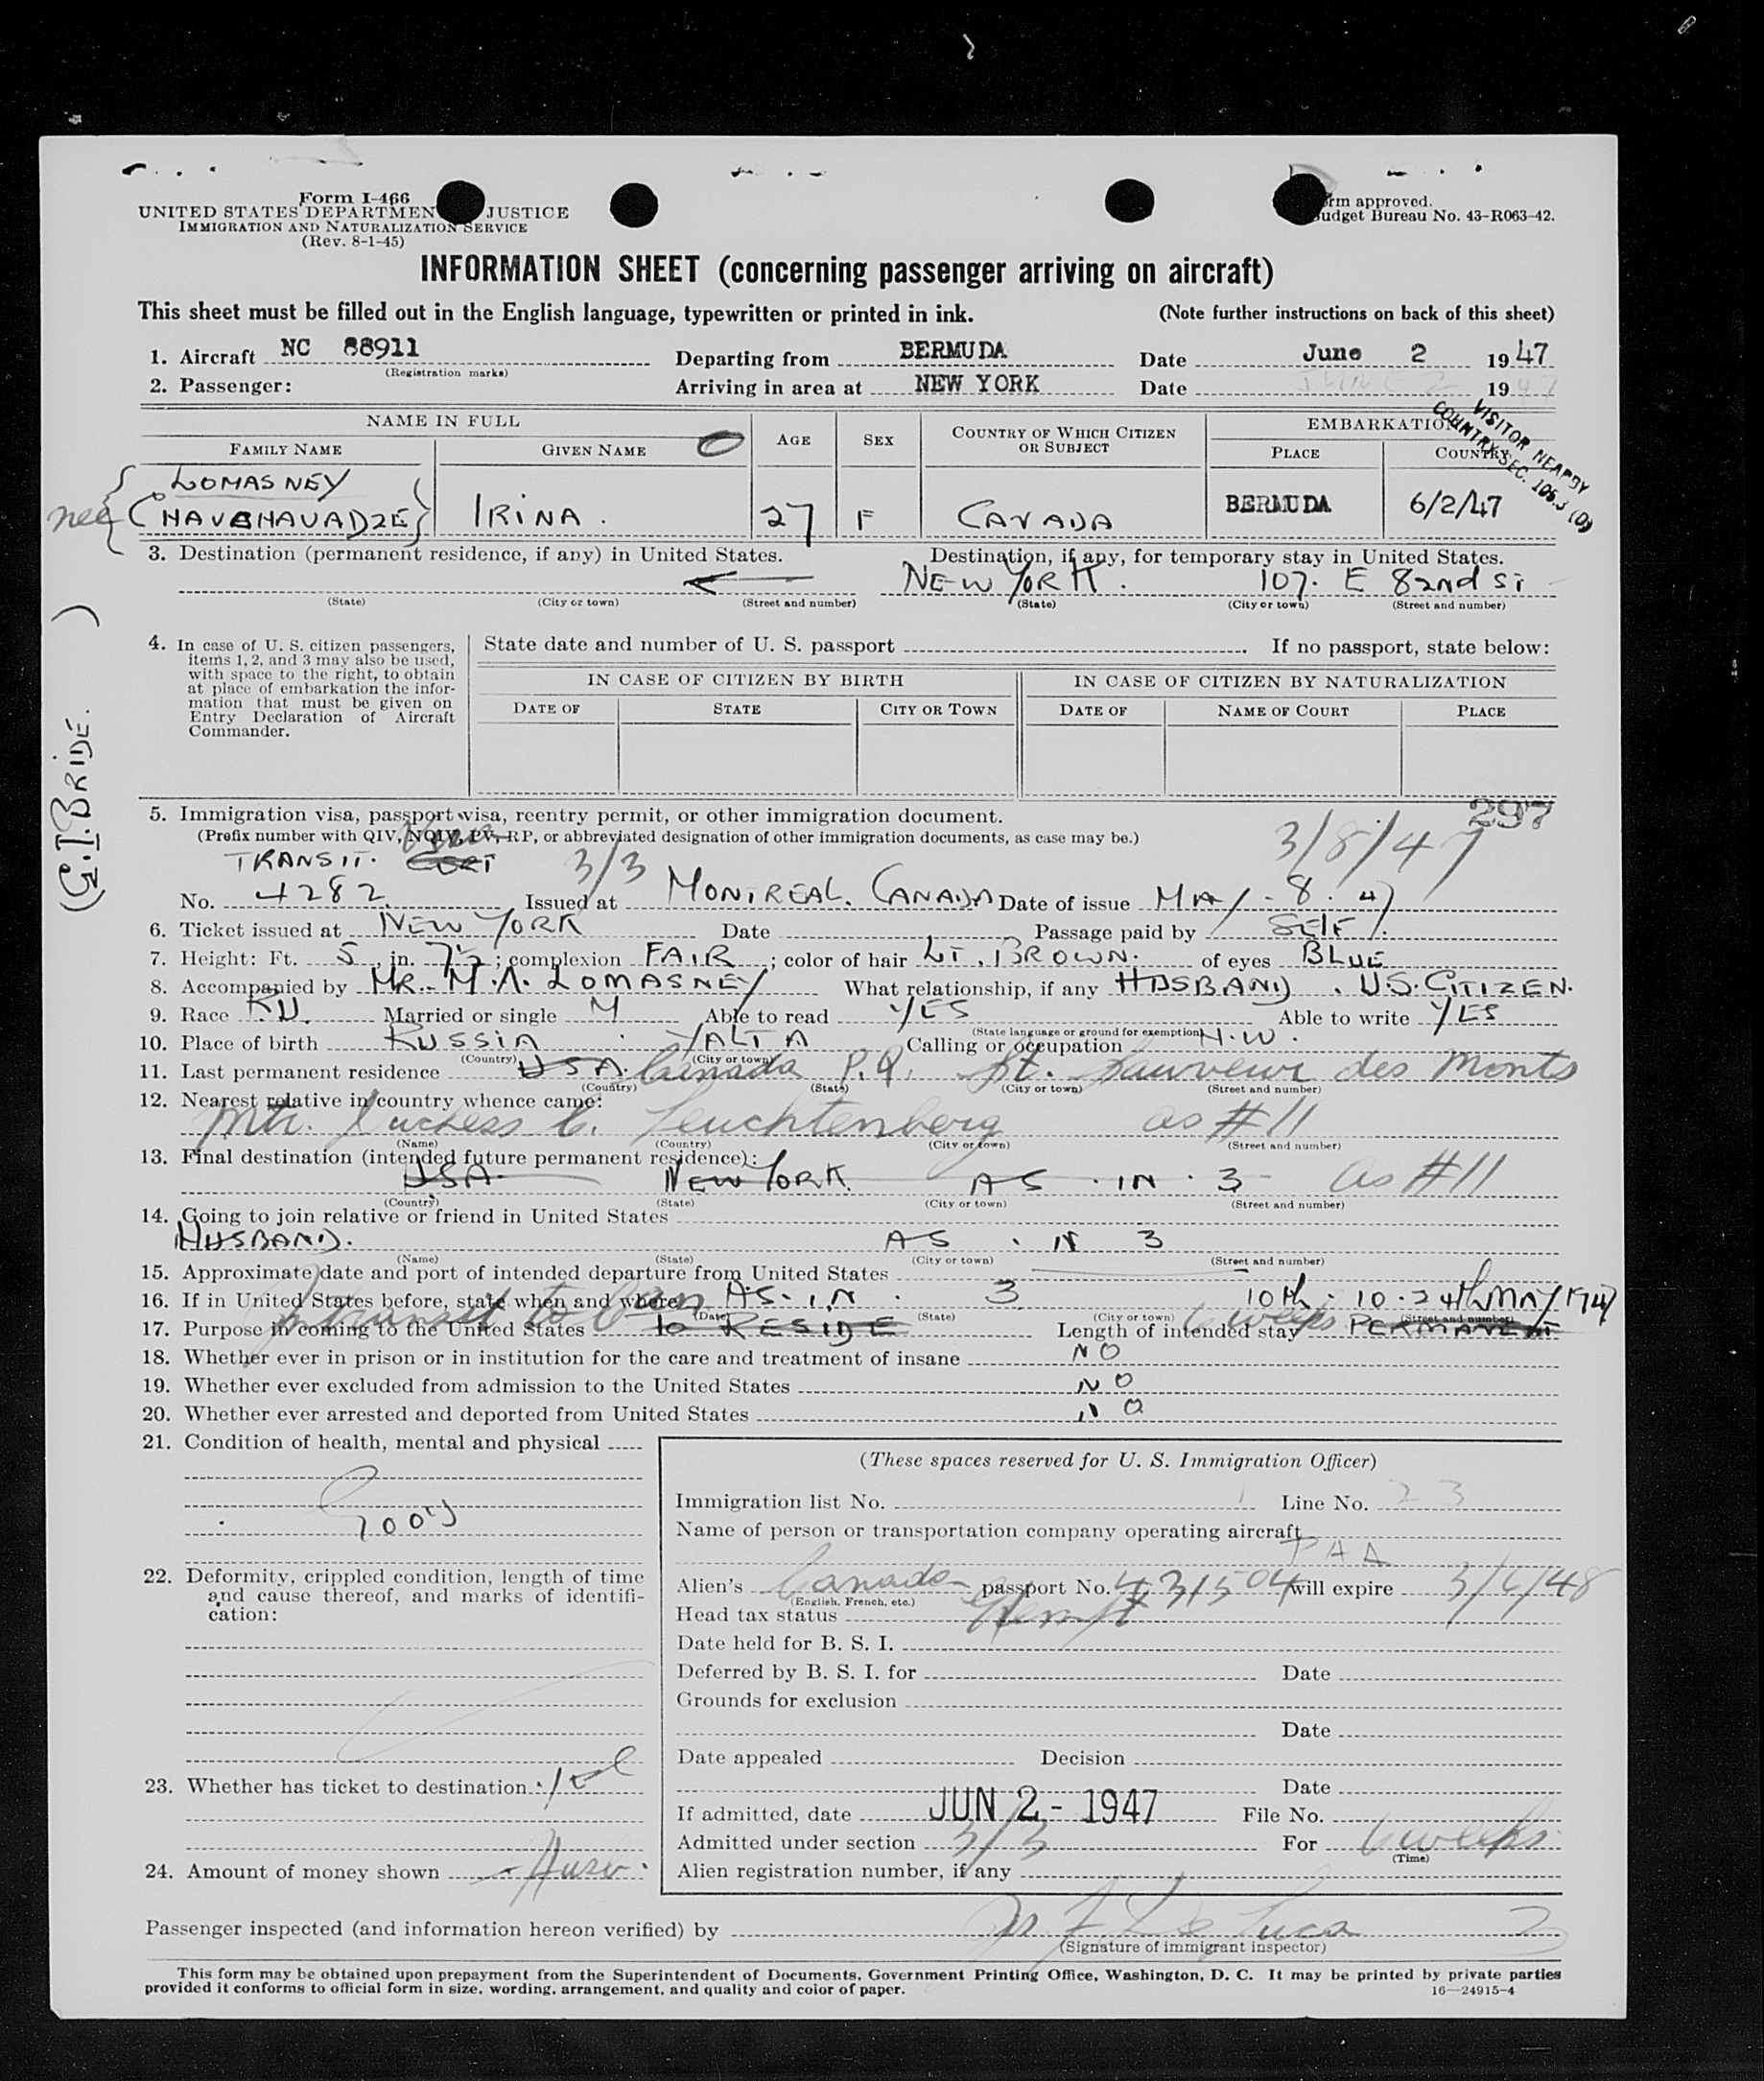 Form I-466
UNITED STATES DEPARTMEN JUSTICE
IMMIGRATION AND NATURALIZATION SERVICE
(Rev. 8-1-45)
rm approved.
udget Bureau No. 43-R063-42.
INFORMATION SHEET (concerning passenger arriving on aircraft)
This sheet must be filled out in the English language, typewritten or printed in ink. (Note further instructions on back of this sheet)
1. Aircraft NC 88911 Departing from BERMUDA Date June 2 1947
(Registration marks)
2. Passenger: Arriving in area at NEW YORK Date JUNE 2 1947
NAME IN FULL AGE SEX COUNTRY OF WHICH CITIZEN OR SUBJECT EMBARKATION
FAMILY NAME GIVEN NAME PLACE COUNTRY
VISITOR NEARBY
COUNTRY SEC. 106.3 (D)
LOMASNEY
nee CHAVCHAVADZE IRINA. 27 F CANADA BERMUDA 6/2/47
3. Destination (permanent residence, if any) in United States. Destination, if any, for temporary stay in United States.
NEW YORK. 107. E 82nd ST
(State) (City or town) (Street and number) (State) (City or town) (Street and number)
(G.I. BRIDE.)
4. In case of U. S. citizen passengers, items 1, 2, and 3 may also be used, with space to the right, to obtain at place of embarkation the information that must be given on Entry Declaration of Aircraft Commander.
State date and number of U. S. passport . If no passport, state below:
IN CASE OF CITIZEN BY BIRTH IN CASE OF CITIZEN BY NATURALIZATION
DATE OF STATE CITY OR TOWN DATE OF NAME OF COURT PLACE
297
5. Immigration visa, passport visa, reentry permit, or other immigration document.
(Prefix number with QIV, NQIV, PV, RP, or abbreviated designation of other immigration documents, as case may be.)
TRANSIT. Visa 3/3 3/8/47
No. 4282 Issued at MONTREAL. CANADA Date of issue MAY - 8. 47
6. Ticket issued at NEW YORK Date Passage paid by SELF.
7. Height: Ft. 5, in. 7½; complexion FAIR; color of hair LT. BROWN. of eyes BLUE
8. Accompanied by MR. M.A. LOMASNEY What relationship, if any HUSBAND. U.S. CITIZEN.
9. Race RU. Married or single M Able to read YES Able to write YES
(State language or ground for exemption)
10. Place of birth RUSSIA YALTA Calling or occupation H.W.
(Country) (City or town)
11. Last permanent residence USA. Canada P.Q. St. Sauveur des Monts
(Country) (State) (City or town) (Street and number)
12. Nearest relative in country whence came:
Mtr. Duchess C. Leuchtenberg as #11
(Name) (Country) (City or town) (Street and number)
13. Final destination (intended future permanent residence):
USA. NEW YORK. AS. IN. 3 as #11
(Country) (State) (City or town) (Street and number)
14. Going to join relative or friend in United States
HUSBAND. AS. IN 3
(Name) (State) (City or town) (Street and number)
15. Approximate date and port of intended departure from United States
16. If in United States before, state when and where AS. IN. 3 10th. 10. 24th MAY 1947
(Date) (State) (City or town) (Street and number)
In transit to Can 6 weeks
17. Purpose in coming to the United States TO RESIDE Length of intended stay PERMANENT
18. Whether ever in prison or in institution for the care and treatment of insane NO
19. Whether ever excluded from admission to the United States NO
20. Whether ever arrested and deported from United States NO
21. Condition of health, mental and physical
Good
22. Deformity, crippled condition, length of time and cause thereof, and marks of identification:
23. Whether has ticket to destination. yes
24. Amount of money shown
(These spaces reserved for U. S. Immigration Officer)
Immigration list No. 1 Line No. 23
Name of person or transportation company operating aircraft
PAA
Alien's Canada passport No. 4-31504 will expire 3/6/48
(English, French, etc.)
Head tax status Exempt
Date held for B. S. I.
Deferred by B. S. I. for Date
Grounds for exclusion
Date
Date appealed Decision
Date
If admitted, date JUN 2 - 1947 File No.
Admitted under section 3/3 For 6 weeks
(Time)
Alien registration number, if any
Passenger inspected (and information hereon verified) by De Luca
(Signature of immigrant inspector)
This form may be obtained upon prepayment from the Superintendent of Documents, Government Printing Office, Washington, D. C. It may be printed by private parties
provided it conforms to official form in size, wording, arrangement, and quality and color of paper. 16—24915-4